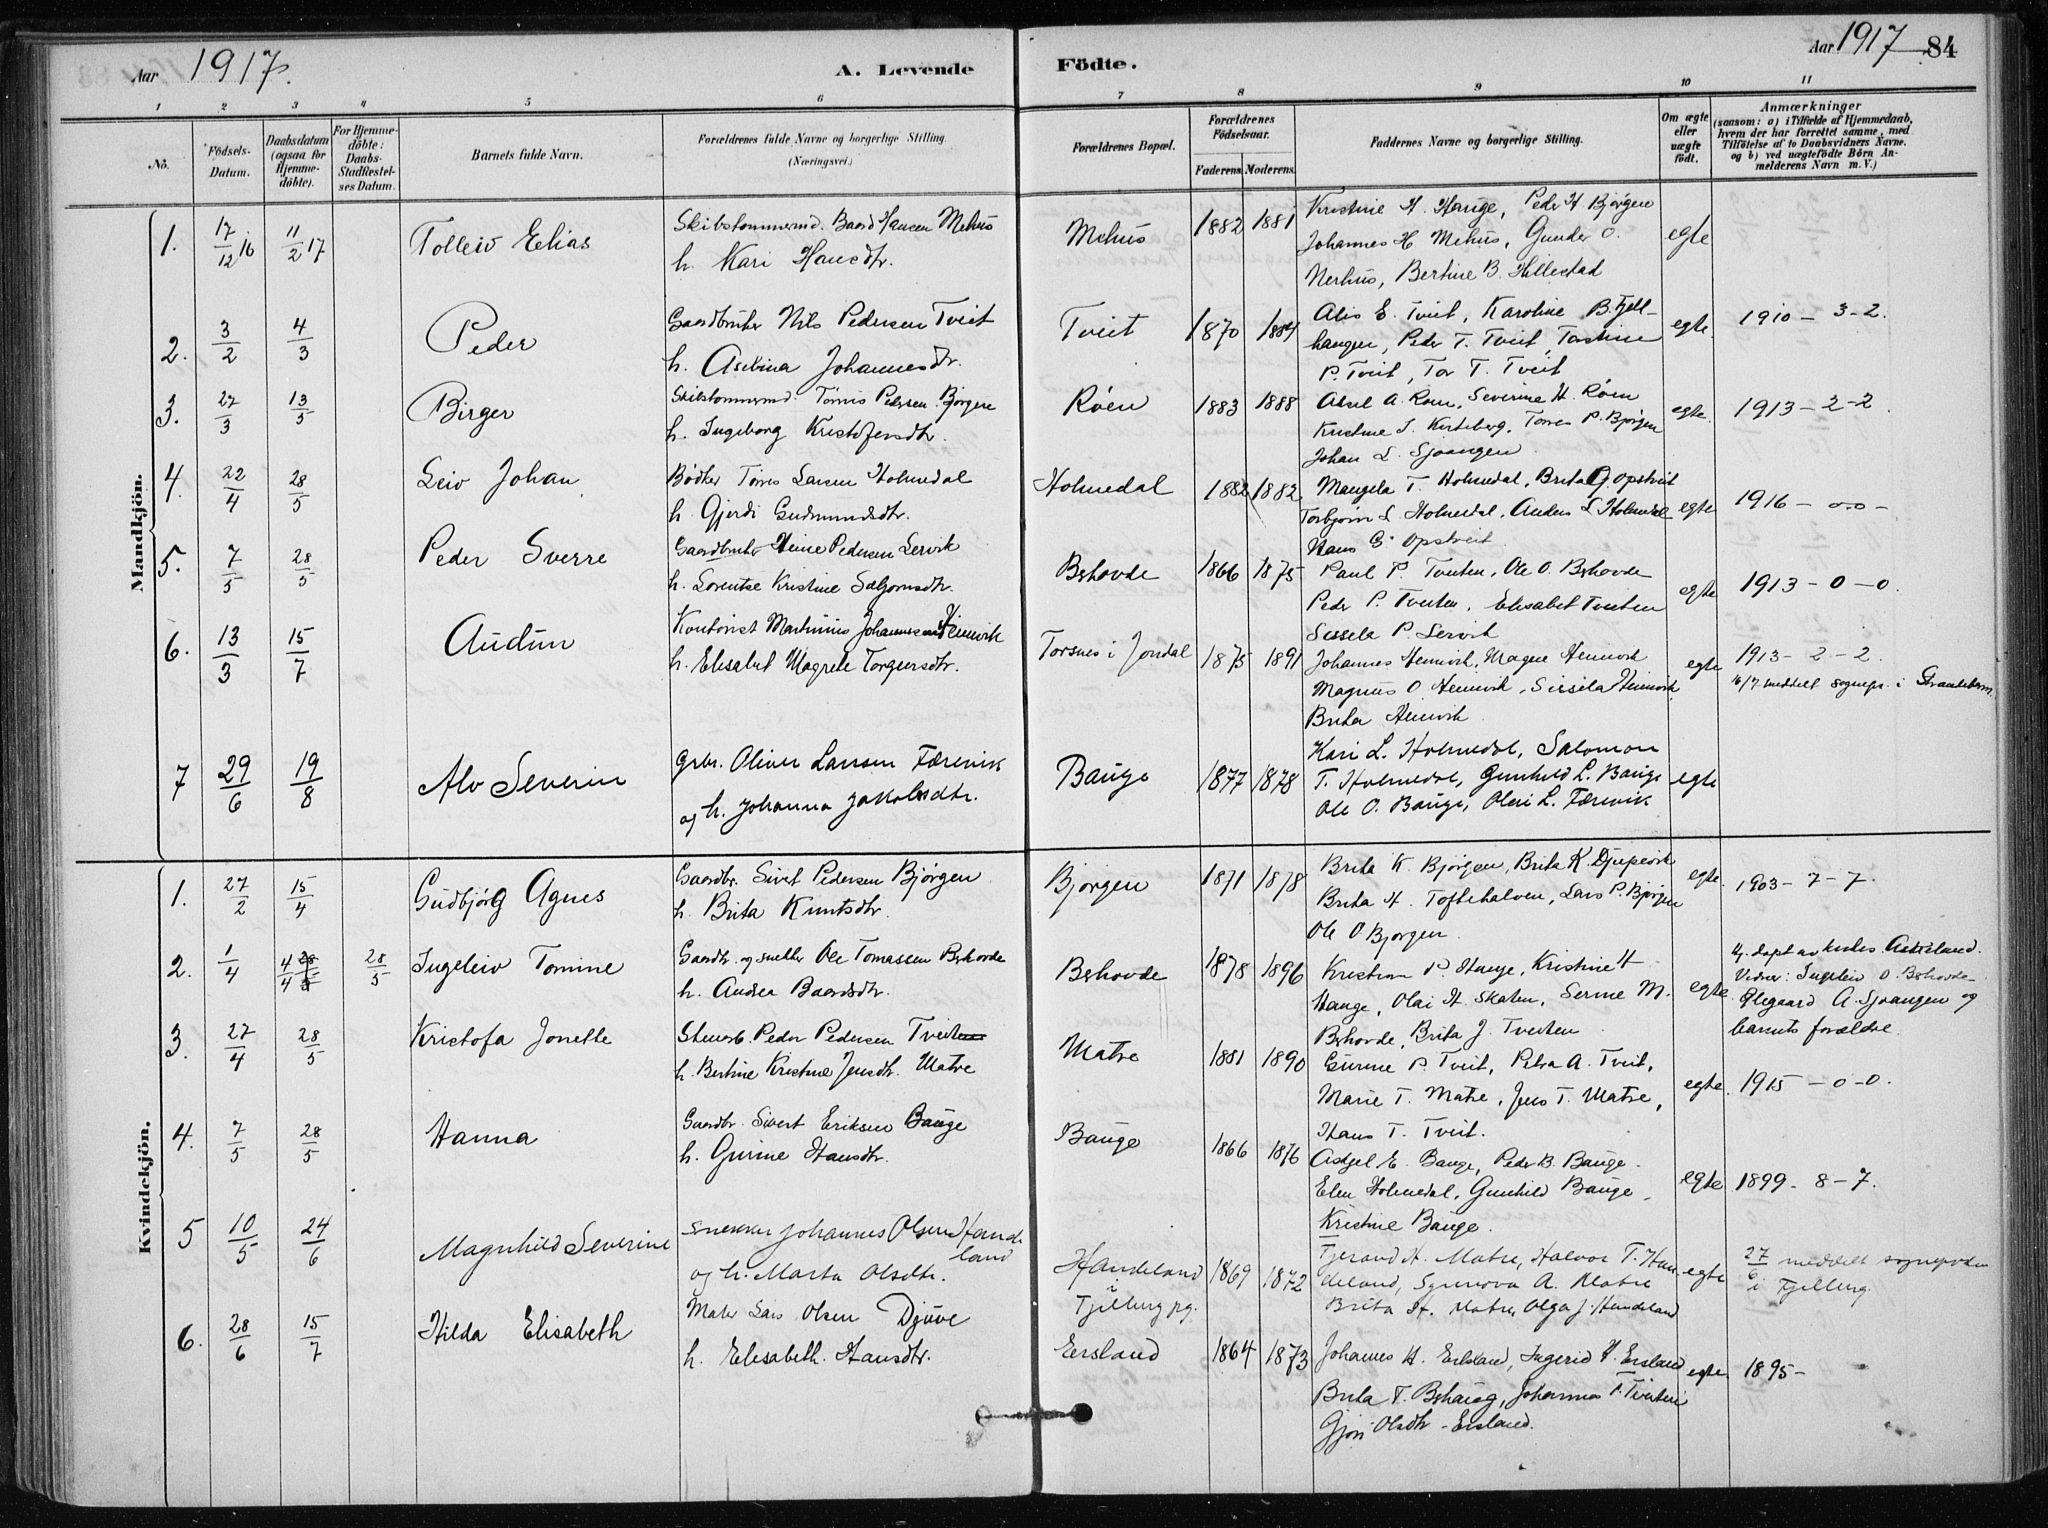 Aar 1917.
A. Levende Födte.
Aar 1917 84
1 2 3 4 5 6 7 8 9 10 11
No.
Födsels-Datum.
Daabsdatum (ogsaa for Hjemme-döbte).
For Hjemme-döbte: Daabs-Stadfæstel-ses Datum.
Barnets fulde Navn.
Forældrenes fulde Navne og borgerlige Stilling. (Næringsvei.)
Forældrenes Bopæl.
Forældrenes Födselsaar.
Faderens. Moderens.
Faddernes Navne og borgerlige Stilling.
Om ægte eller uægte födt.
Anmærkninger
(saasom: a) i Tilfælde af Hjemmedaab,
hvem der har forrettet samme, med
Tilföielse af to Daabsvidners Navne.
og b) ved uægtefödte Börn An-
melderens Navn m. V.)
Mandkjön.
1. 17/12 16 11/2 17 Tolleiv Elias
Skibstømmermd. Baard Hansen Mehus
h. Kari Hansdtr.
Mehus 1882 1881
Kristine H. Hauge, Peder H. Bjørgen
Johannes H. Mehus, Gunder O.
Nerhus, Bertine B. Hillestad
egte
2. 3/2 4/3 Peder
Gaardbruker Nils Pedersen Tveit
h. Asebina Johannesdtr.
Tveit 1870 1884
Alis E. Tveit, Karoline B. Fjell-
haugen, Peder T. Tveit, Torstine
P. Tveit, Tor T. Tveit
egte. 1910 - 3-2.
3. 27/3 13/5 Birger
Skibstommermd. Tørris Pedersen Bjørgen
h. Ingeborg Kristofersdtr.
Røen 1883 1888
Aksel A. Røen, Severine H. Røen
Kristine J. Kertsberg, Torres P. Bjørgen
Johan L. Sjoangen
egte. 1913-2-2.
4. 22/4 28/5 Leiv Johan
Bødker Tørres Larsen Holmedal
h. Gjerdi Gudmundsdtr.
Holmedal 1882 1882
Mangela T. Holmedal, Brita G. Opstveit
Torbjørn L. Holmedal, Anders L. Holmedal
Hans G. Opstveit
egte 1916 - 0-0-
5. 7/5 28/5 Peder Sverre
Gaardbruker Heine Pedersen Lervik
h. Lorentse Kristine Salgjornsdtr.
Bshovde 1866 1875
Paul P. Tveiten, Ole O. Bshovde
Peder P. Tveiten, Elisabet Tveiten
Sissela P. Lervik
egte 1913-0-0.
6. 13/3 15/7 Audun
Kontorist Martinius Johannessen Heinvik
h. Elisabet Magrete Torgersdtr.
Torsnes i Jondal 1875 1891
Johannes Heinvik, Magne Heinvik
Magnus O. Heinvik, Sissela Heinvik
Brita Heinvik
egte 1913-2-2.
16/7 meddelt sognepr. i Strandebarm.
7 29/6 19/8 Alv Severin
Grbr. Oliver Larsen Færevik
og h. Johanna Jakobsdtr.
Bauge 1877 1878
Kari L. Holmedal, Salomon
T. Holmedal, Gunhild L. Bauge
Ole O. Bauge, Olai L. Færevik
egte
Kvindekjön.
1. 27/2 15/4 Gudbjørg Agnes
Gaardbr. Sivert Pedersen Bjørgen
h. Brita Knutsdtr.
Bjørgen 1871 1878
Brita K. Bjørgen, Brita K. Djupevik
Brita H. Toftehalven, Lars P. Bjørgen
Ole O. Bjørgen
egte. 1903-7-7.
2. 1/4 4/4 28/5 28/5 Ingeleiv Tomine
Gaardbr. og snekker Ole Tomassen Bshovde
h. Andrea Baardsdtr.
Bshovde 1878 1896
Kristian P. Hauge, Kristine H.
Hauge, Olai H. Skaten, Serine M.
Bshovde, Brita J. Tveiten
egte.
Hj. døpt av Aksland.
Vidner: Ingeleiv O. Bshovde
Ølegaard A. Sjoangen og
barnets forældre.
3. 27/4 28/5 Kristofa Jonette
Stenarb. Peder Pedersen Tveit
h. Bertine Kristine Jensdtr. Matre
Matre 1881 1890
Gurine P. Tveit, Petra A. Tveit,
Marie T. Matre, Jens T. Matre,
Hans T. Tveit.
egte. 1915-0-0.
4. 7/5 28/5 Hanna
Gaardbr. Sivert Eriksen Bauge
h. Gurine Hansdtr.
Bauge 1866 1876
Askjel E. Bauge, Peder B. Bauge.
Elen Holmedal, Gunhild Bauge,
Kristine Bauge.
egte 1899-8-7.
5 10/5 24/6 Magnhild Severine
Snekker Johannes Olsen Hande-
land
og h. Marta Olsdtr.
Handeland
i
Fjelberg pg. 1869 1872
Tjerand H. Matre, Halvor T. Han-
deland, Synnova A. Matre
Brita H. Matre, Olga J. Handeland
egte
27/6 meddelt sogneprden
i Fjelberg.
6. 28/6 15/7 Hilda Elisabeth
Maler Lars Olsen Djuve
h. Elisabeth Hansdtr.
Eersland 1864 1873
Johannes H. Ersland, Ingerid H. Ersland
Brita T. Bshaug, Johannes T. Tveiten
Gjøri Olsdtr Ersland.
egte. 1895-